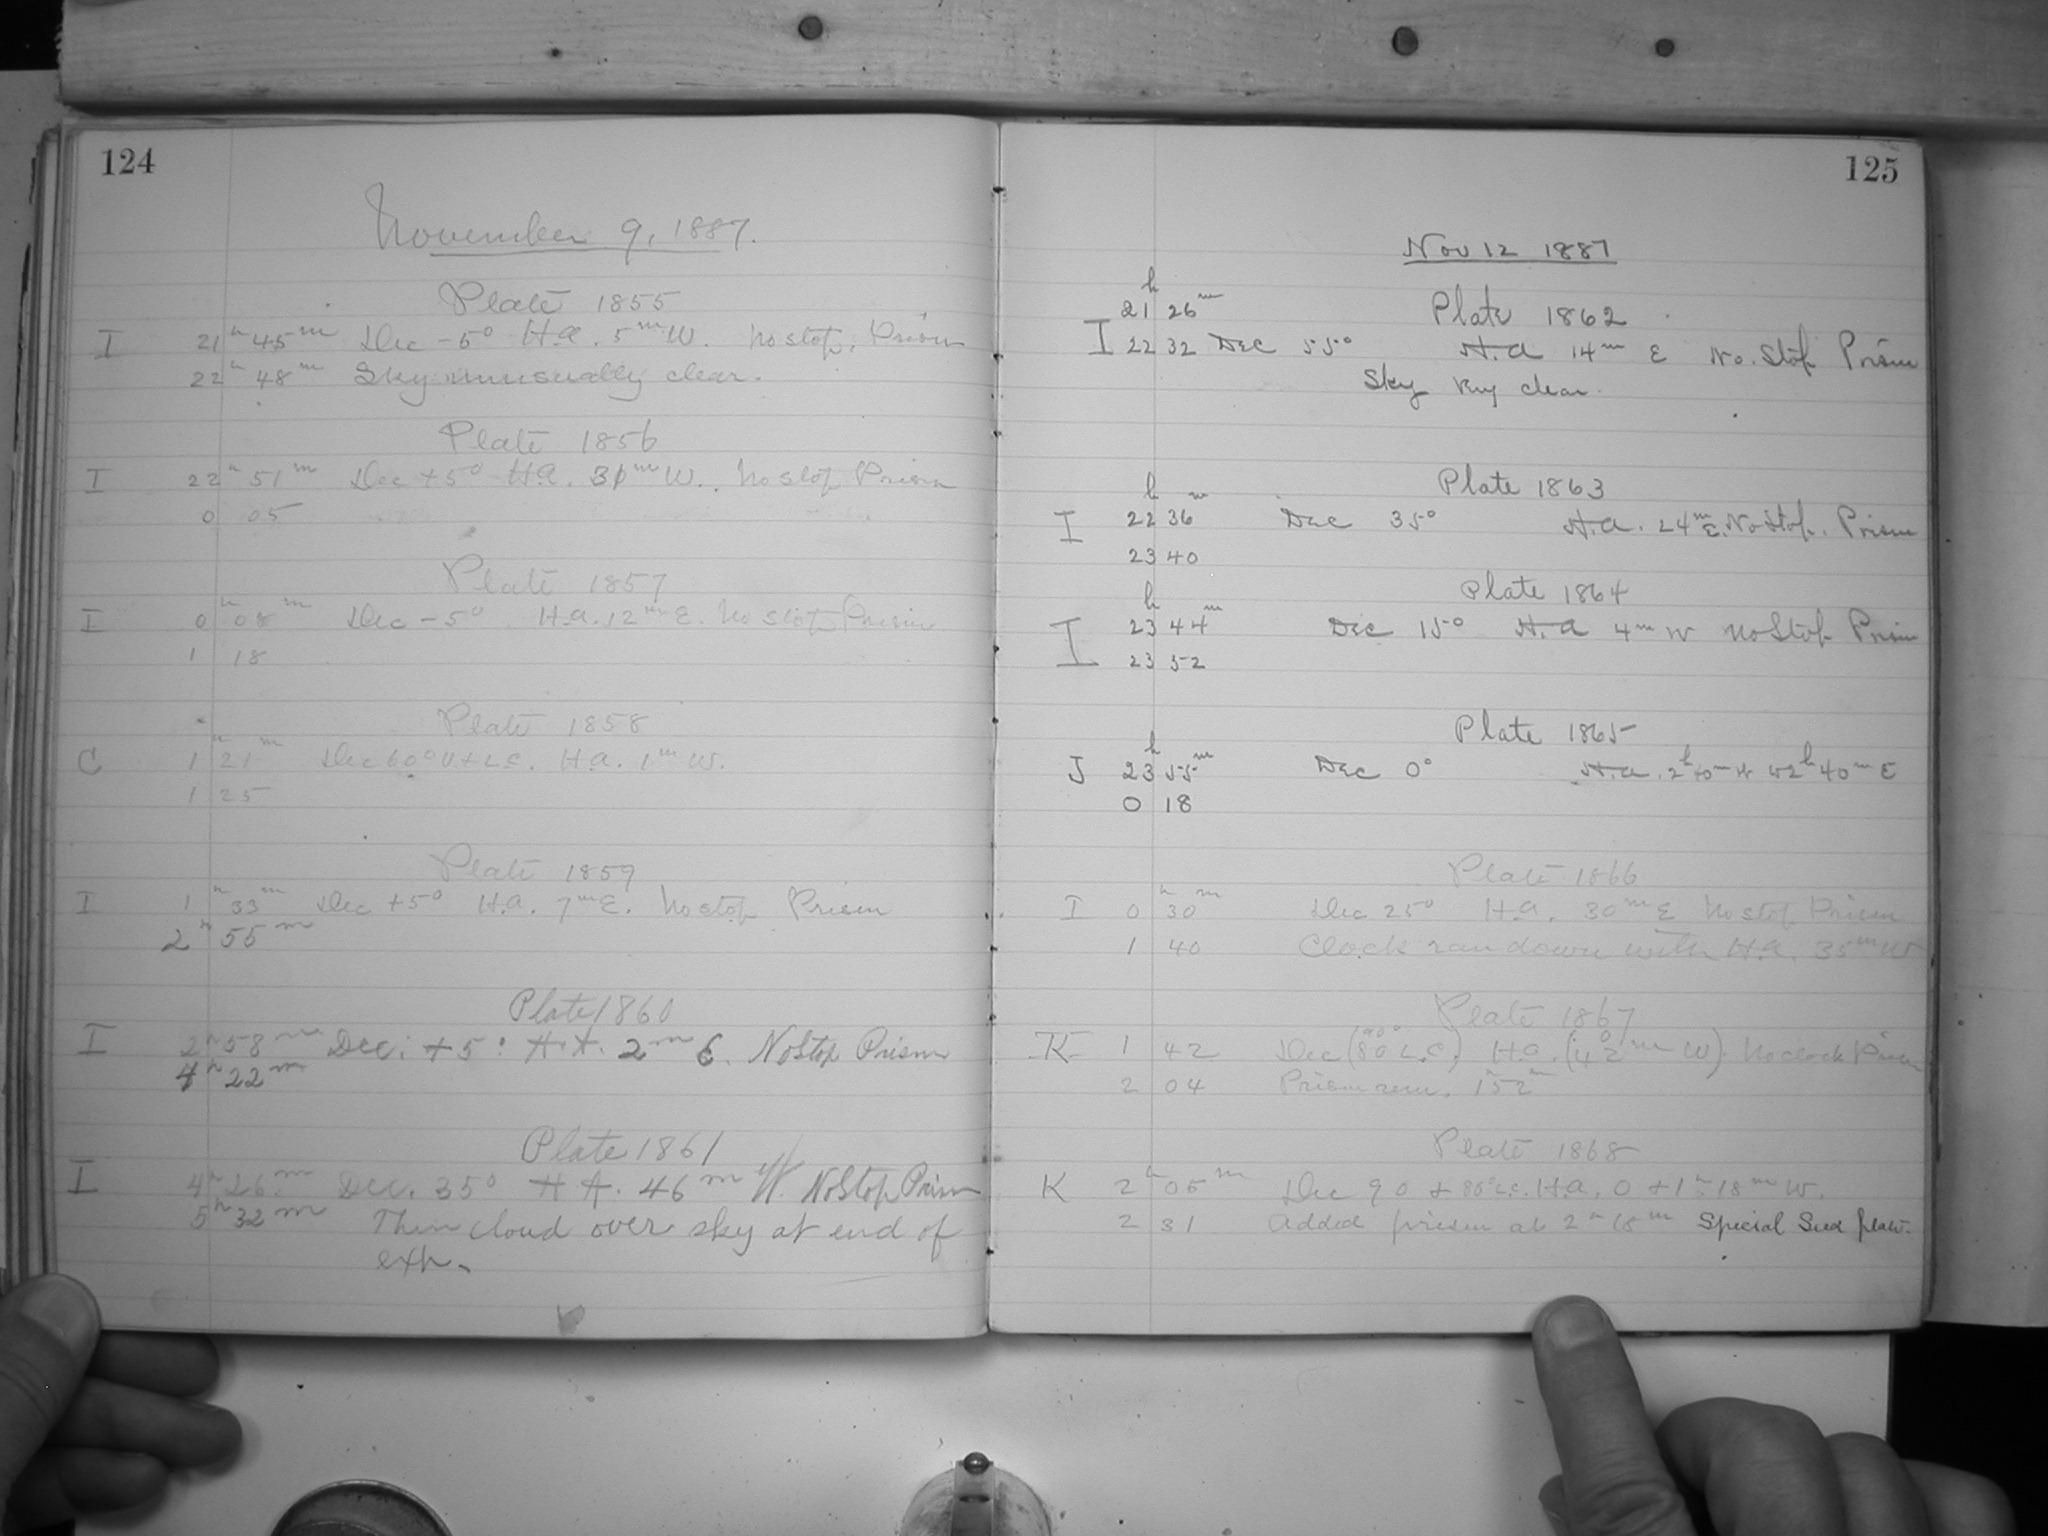 124
November 9, 1887.
Plate 1855
I 21h 45m Dec -5° H.a. 5m W. No stop, Prism
22h 48m Sky unusually clear.
Plate 1856
I 22h 51m Dec +5° H.a. m W. No stop Prism
0 05
Plate 1857
I 0h 08m Dec -5° H.a. 12m E. No stop Prism
1 18
Plate 1858
C 1h 21m Dec 60° U + L.C. H.a. 1m W.
1 25
Plate 1859
I 1h 33m Dec +5° H.a. 7m E. No stop Prism
2h 55m
Plate 1860
I 2h 58m Dec. +5° H.A. 2m E. No Stop Prism
4h 22m
Plate 1861
I 4h 26m Dec. 35° H A. 46m W. No Stop Prism
5h 32m Thin cloud over sky at end of
exp.
125
Nov 12 1887
h
21 26m Plate 1862
I 22 32 Dec 55° H.a 14m E No. Stop Prism
Sky very clear.
Plate 1863
h m
I 22 36 Dec 35° H.a. 24m E. No Stop. Prism
23 40
Plate 1864
h m
I 23 44 Dec 15° H.a 4m W No Stop Prism
23 52
Plate 1865
h m
J 23 55 Dec 0° H.a. 2h m W 2h 40m E
0 18
Plate 1866
I 0h 30m Dec 25° H.a. 30m E No stop Prism
1 40 Clock ran down with H.a. 35m W
Plate 1867
K 1 42 Dec (80° L.C.) H.a. ( m W) No clock Prism
2 04 Prism rem. 1h 52m
Plate 1868
K 2h 05m Dec 90 + 80° L.C. H.a. 0 + 1h 18m W.
2 31 Added prism at 2h 18m Special Seed plate.